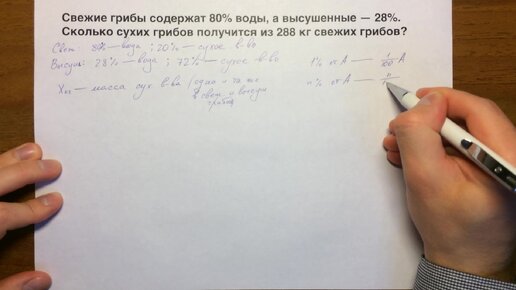 Свежие грибы содержат 80% воды, а высушенные — 28%.
Сколько сухих грибов получится из 288 кг свежих грибов?
Свеж: 80% — вода ; 20% — сухое в-во
Высуш: 28% — вода ; 72% — сухое в-во
1% от A — 1/100 A
X кг — масса сух в-ва (одна и та же
в свеж и высуш
грибах
n% от A — n